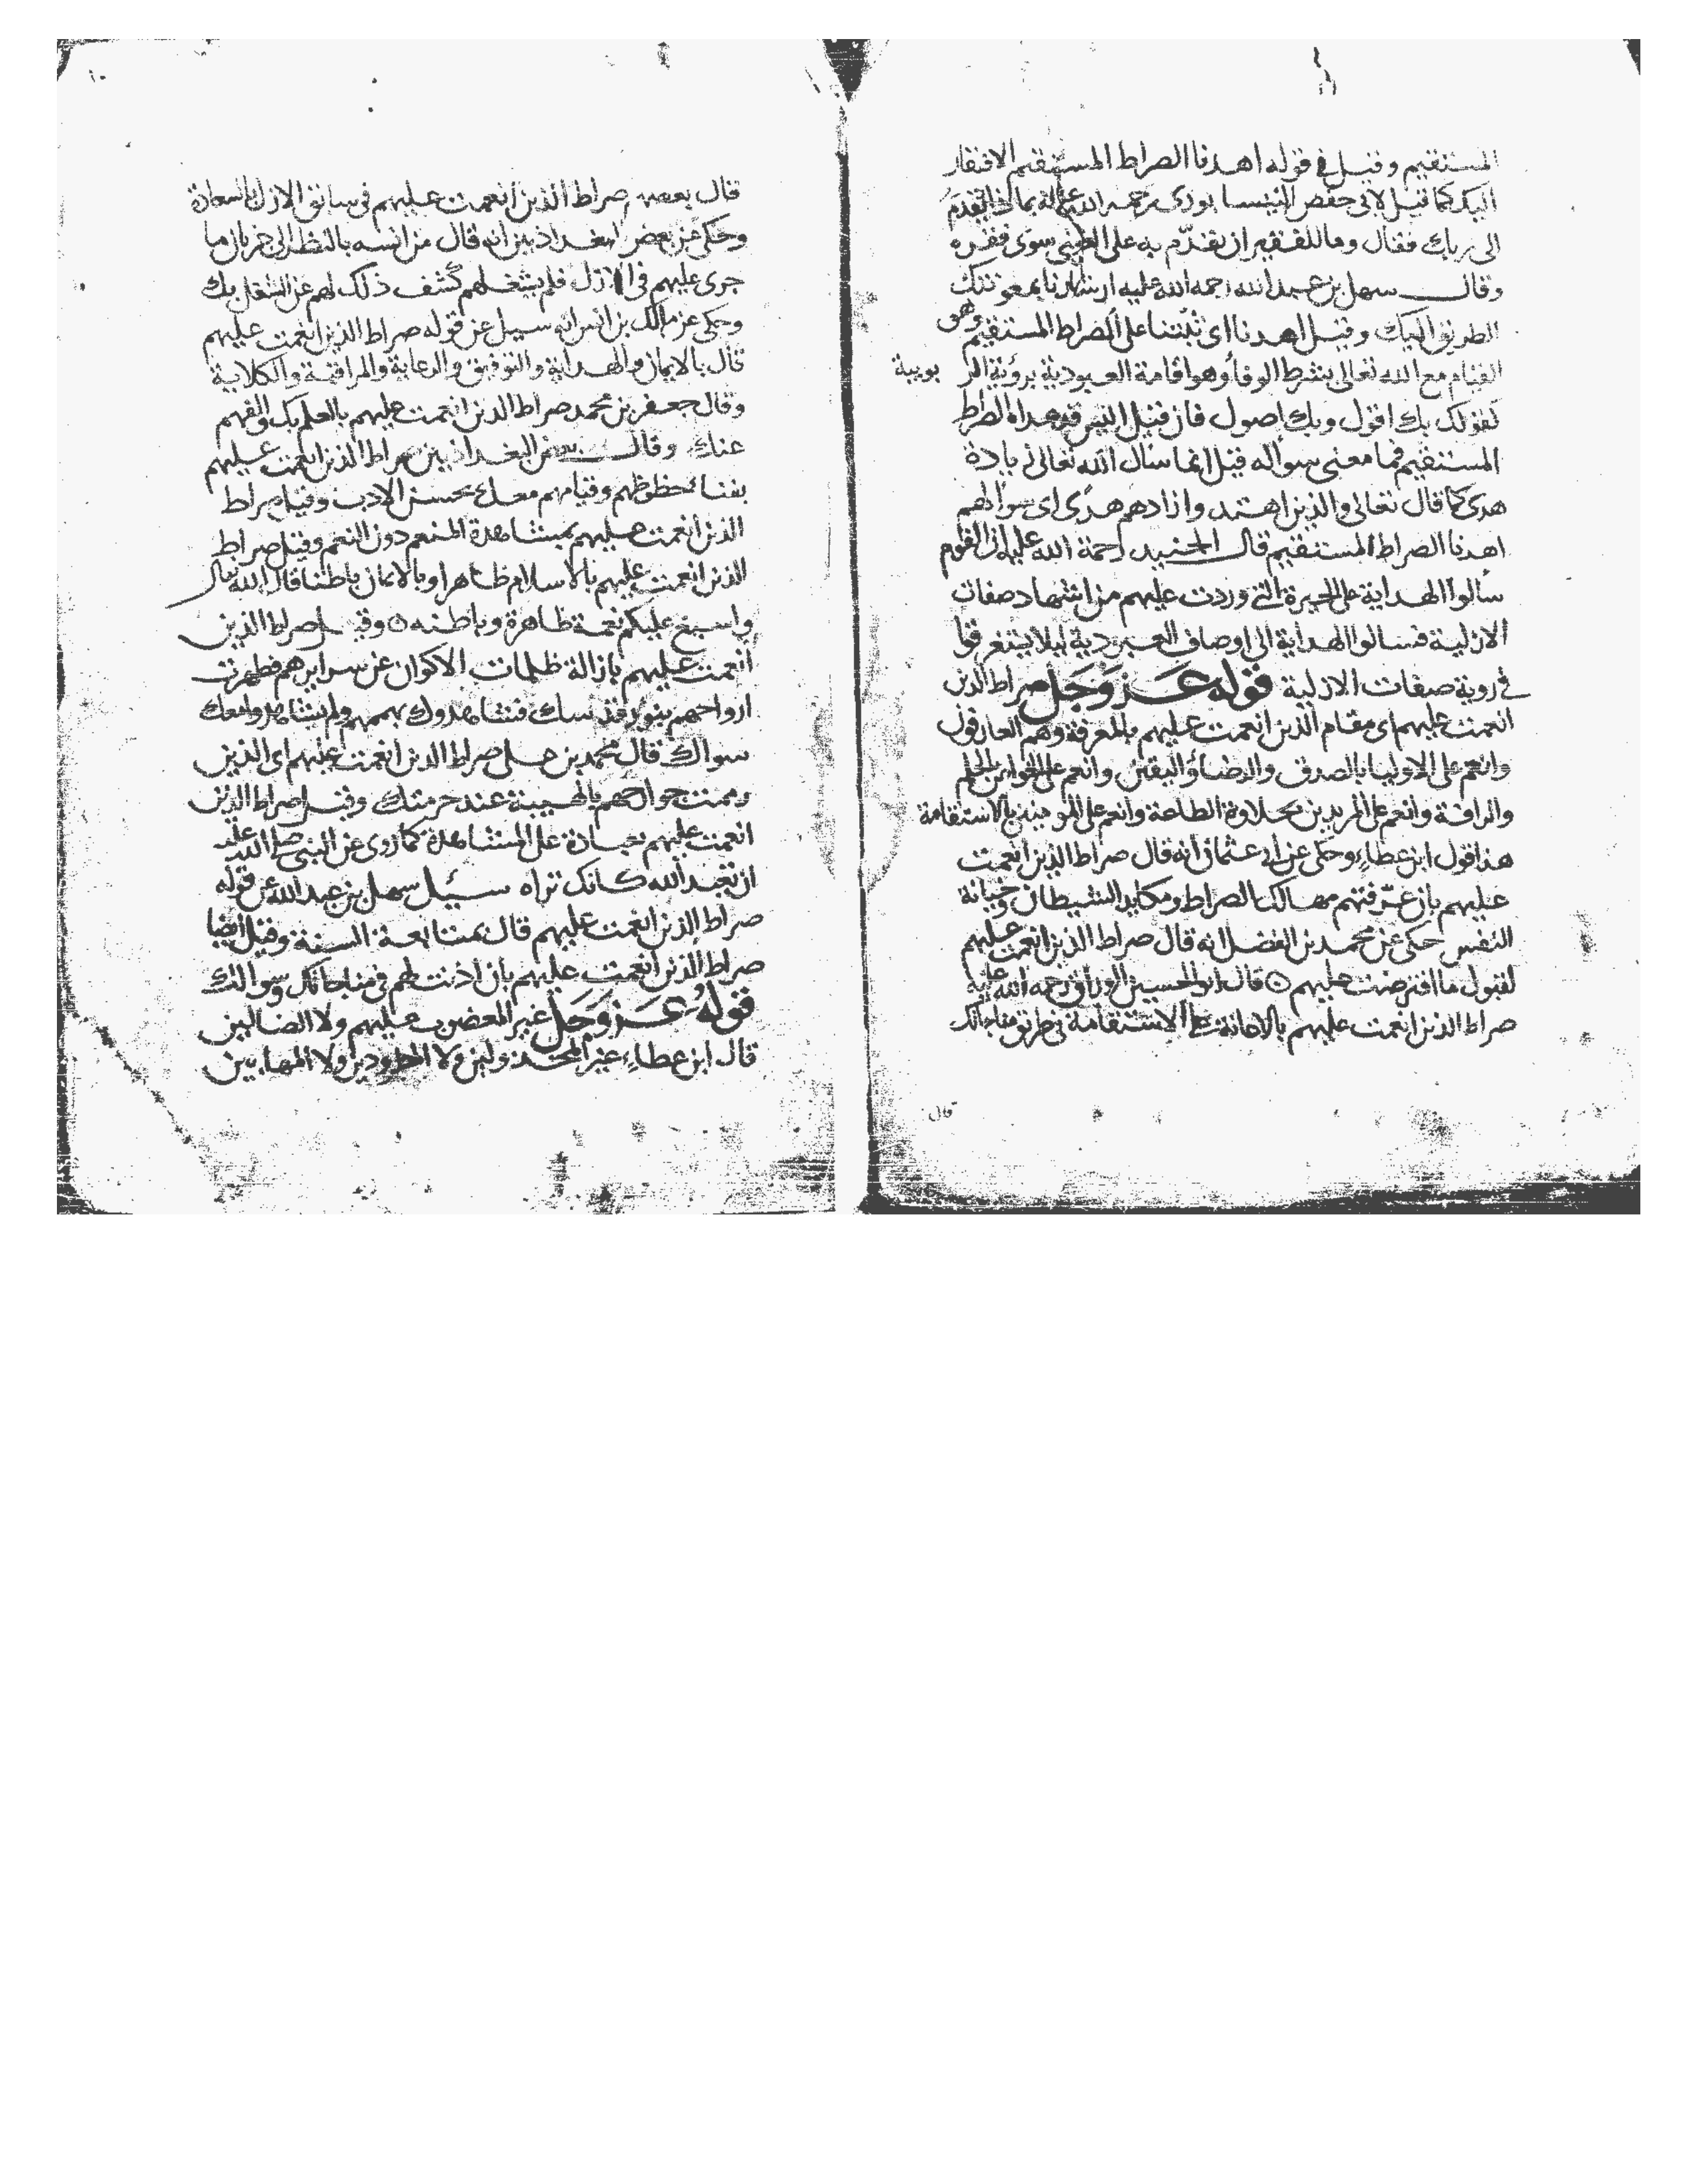 المستقيم وقيل في قوله اهدنا الصراط المستقيم الافتقار
اليك كما قيل لابي حفص النيسابوري رحمه الله بماذا تقدم
الى ربك فقال وما للفقير ان يقدم به على الغني سوى فقره
وقال سهل بن عبد الله رحمه الله عليه ارشدنا بمعونتك
الطريق اليك وقيل اهدنا اي ثبتنا على الصراط المستقيم وهو
القيام مع الله تعالى بشرط الوفا وهو اقامة العبودية برؤية الربوبية
كقولك بك اقول وبك اصول فان قيل اليس قد هداه الصراط
المستقيم فما معنى سواله قيل انما سال الله تعالى زيادة
هدى كما قال تعالى والذين اهتدوا زادهم هدى اي سوالهم
اهدنا الصراط المستقيم قال الجنيد رحمة الله عليه ان القوم
سألوا الهداية على الحيرة التي وردت عليهم من اشهاد صفات
الازلية فسالوا الهداية الى اوصاف العبودية ليلا يستغرقوا
في روية صفات الازلية قوله عز وجل صراط الذين
انعمت عليهم اي مقام الذين انعمت عليهم بالمعرفة وهم العارفون
وانعم على الاوليا بالصدق والرضاء واليقين وانعم على بالحلم
والرافة وانعم على المريدين بحلاوة الطاعة وانعم على المومنين بالاستقامة
هذا قول ابن عطاء وحكى عن ابي عثمان انه قال صراط الذين انعمت
عليهم بان عرفتهم مهالك الصراط ومكايد الشيطان وخيانة
النفس حكى عن محمد بن الفضل انه قال صراط الذين انعمت عليهم
لقبول ما افترضت عليهم ○ قال ابو الحسين الوراق رحمه الله عليه
صراط الذين انعمت عليهم بالاعانة على الاستقامة في طريق مناجاتك
قال
قال بعضهم صراط الذين انعمت عليهم في سابق الازل بالسعادة
وحكى عن بعض البغداذيين انه قال من انسه بالنظر الى جريان ما
جرى عليهم في الازل فلم يشغلهم كشف ذلك لهم عن الشغل بك
وحكى عن مالك بن انس انه سيل عن قوله صراط الذين انعمت عليهم
قال بالايمان والهداية والتوفيق والرعاية والمراقبة والكلاية
وقال جعفر بن محمد صراط الذين انعمت عليهم بالعلم بك والفهم
عنك وقال بعض البغداذيين صراط الذين انعمت عليهم
بفناء حظوظهم وقيامهم معك بحسن الادب وقيل صراط
الذين انعمت عليهم بمشاهدة المنعم دون النعم وقيل صراط
الذين انعمت عليهم بالاسلام ظاهرا وبالايمان باطنا قال الله تعالى
واسبغ عليكم نعمة ظاهرة وباطنه ○ وقيل صراط الذين
انعمت عليهم بازالة ظلمات الاكوان عن سرايرهم فطهرت
ارواحهم بنور قدسك فشاهدوك بهمهم ولم يشاهدوا معك
سواك قال محمد بن علي صراط الذين انعمت عليهم اي الذين
جوارحهم بالهيبة عند خرمتك وقيل صراط الذين
انعمت عليهم بعبادة على المشاهدة كما روى عن النبي صلى الله عليه
ان تعبد الله كانك تراه سئيل سهل بن عبد الله عن قوله
صراط الذين انعمت عليهم قال بمتابعة السنة وقيل ايضا
صراط الذين انعمت عليهم بان اذنت لهم في مناجاتك وسوالك
قوله عز وجل غير المغضوب عليهم ولا الضالين
قال ابن عطاء غير المخذولين ولا المطرودين ولا المهابين